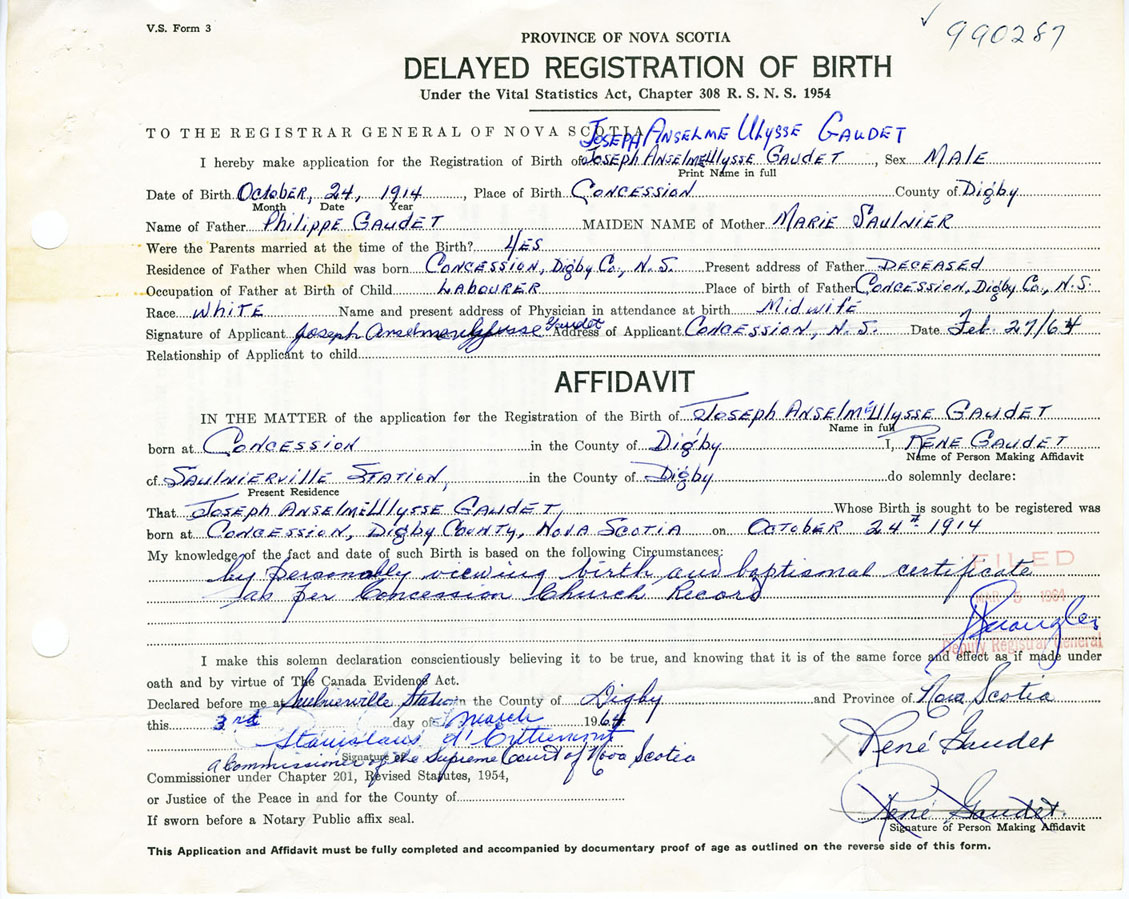 V.S. Form 3
✓ 990287
PROVINCE OF NOVA SCOTIA
DELAYED REGISTRATION OF BIRTH
Under the Vital Statistics Act, Chapter 308 R. S. N. S. 1954
TO THE REGISTRAR GENERAL OF NOVA SCOTIA Joseph Anselme Ulysse Gaudet
I hereby make application for the Registration of Birth of Joseph Anselme Ulysse Gaudet, Sex Male
Print Name in full
Date of Birth October, 24, 1914, Place of Birth Concession County of Digby
Month Date Year
Name of Father Philippe Gaudet MAIDEN NAME of Mother Marie Saulnier
Were the Parents married at the time of the Birth? Yes
Residence of Father when Child was born Concession, Digby Co., N.S. Present address of Father Deceased
Occupation of Father at Birth of Child Labourer Place of birth of Father Concession, Digby Co., N.S.
Race White Name and present address of Physician in attendance at birth Midwife
Signature of Applicant Joseph Anselme Ulysse Gaudet Address of Applicant Concession, N.S. Date Feb. 27/64
Relationship of Applicant to child
AFFIDAVIT
IN THE MATTER of the application for the Registration of the Birth of Joseph Anselme Ulysse Gaudet
Name in full
born at Concession in the County of Digby I, Rene Gaudet
Name of Person Making Affidavit
of Saulnierville Station, in the County of Digby do solemnly declare:
Present Residence
That Joseph Anselme Ulysse Gaudet, Whose Birth is sought to be registered was
born at Concession, Digby County, Nova Scotia on October 24th 1914
My knowledge of the fact and date of such Birth is based on the following Circumstances:
FILED
by personally viewing birth and baptismal certificate
as per Concession Church Record
Deputy Registrar General
I make this solemn declaration conscientiously believing it to be true, and knowing that it is of the same force and effect as if made under
oath and by virtue of The Canada Evidence Act.
Declared before me at Saulnierville Station in the County of Digby and Province of Nova Scotia
this 3rd day of March 1964
Stanislaus d'Entremont
René Gaudet
Signature of
a Commissioner of the Supreme Court of Nova Scotia
Commissioner under Chapter 201, Revised Statutes, 1954,
or Justice of the Peace in and for the County of
René Gaudet
If sworn before a Notary Public affix seal.
Signature of Person Making Affidavit
This Application and Affidavit must be fully completed and accompanied by documentary proof of age as outlined on the reverse side of this form.